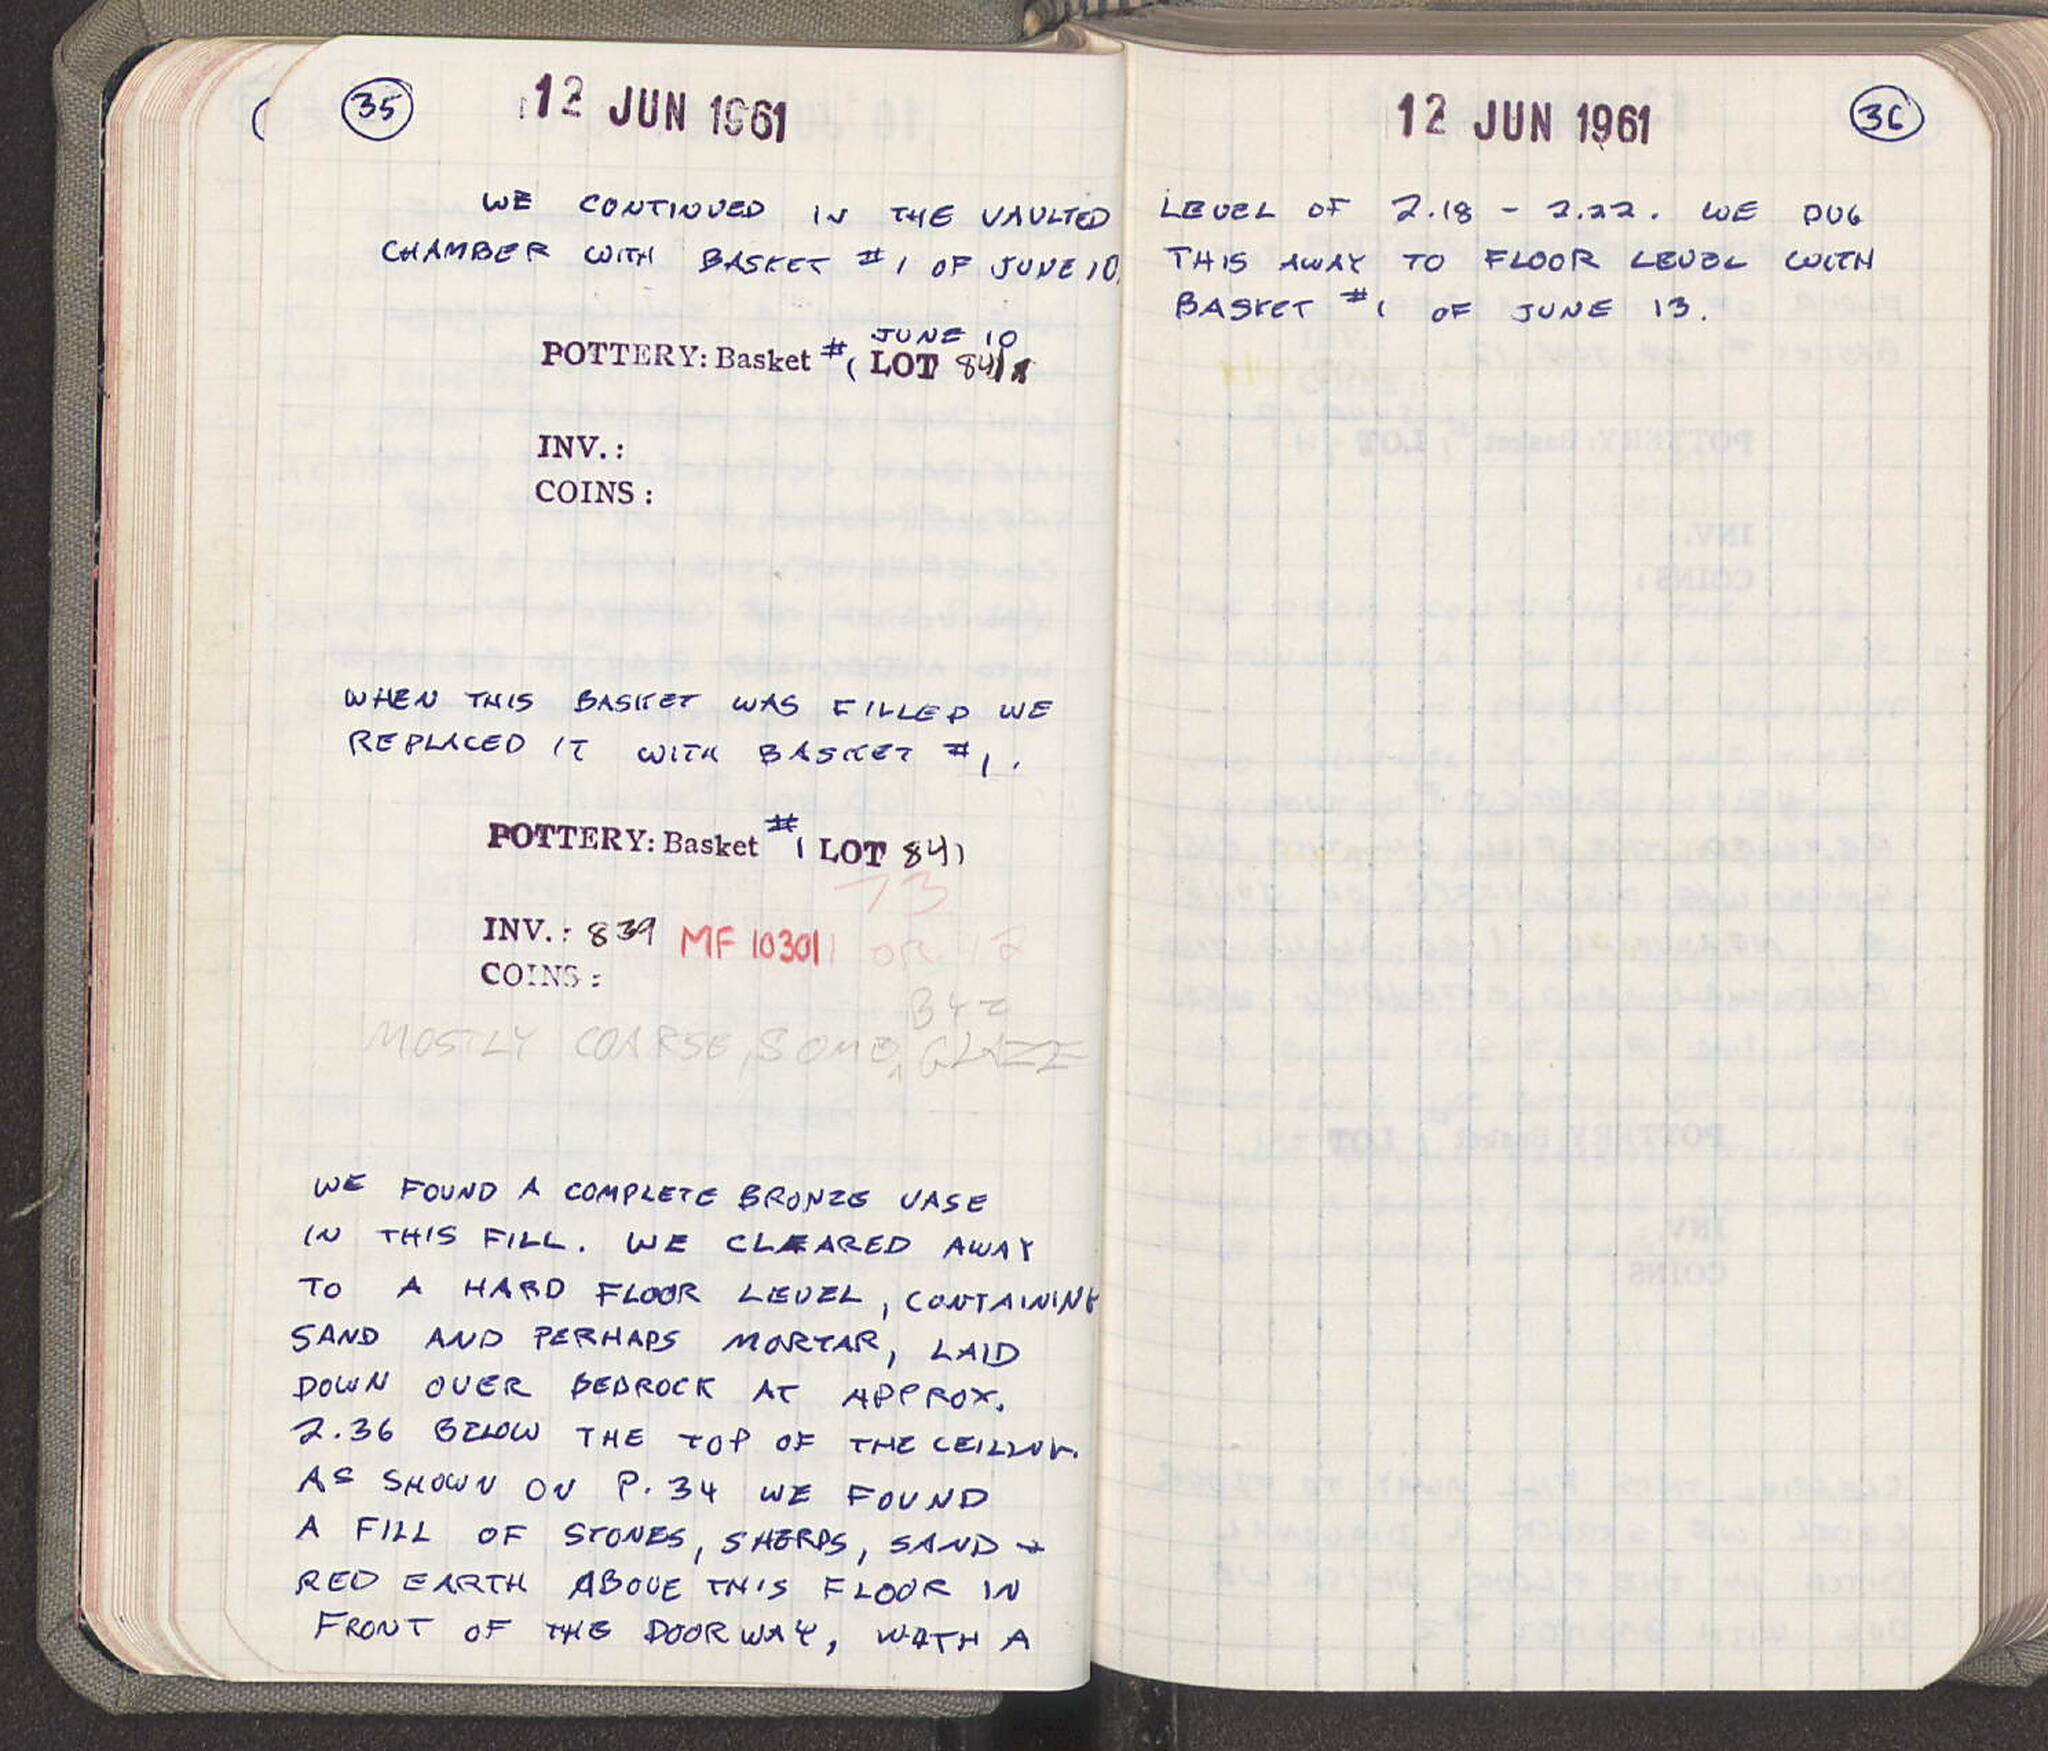 35
12 JUN 1961
WE CONTINUED IN THE VAULTED
CHAMBER WITH BASKET #1 OF JUNE 10.
JUNE 10
POTTERY: Basket #1 LOT 841
INV.:
COINS:
WHEN THIS BASKET WAS FILLED WE
REPLACED IT WITH BASKET #1.
POTTERY: Basket #1 LOT 841
73
INV.: 839 MF 10301
COINS:
B+Z
MOSTLY COARSE, SOME GLAZE
WE FOUND A COMPLETE BRONZE VASE
IN THIS FILL. WE CLEARED AWAY
TO A HARD FLOOR LEVEL, CONTAINING
SAND AND PERHAPS MORTAR, LAID
DOWN OVER BEDROCK AT APPROX.
2.36 BELOW THE TOP OF THE CEILING.
AS SHOWN ON P. 34 WE FOUND
A FILL OF STONES, SHERDS, SAND +
RED EARTH ABOVE THIS FLOOR IN
FRONT OF THE DOORWAY, WITH A
12 JUN 1961
36
LEVEL OF 2.18 - 2.22. WE DUG
THIS AWAY TO FLOOR LEVEL WITH
BASKET #1 OF JUNE 13.